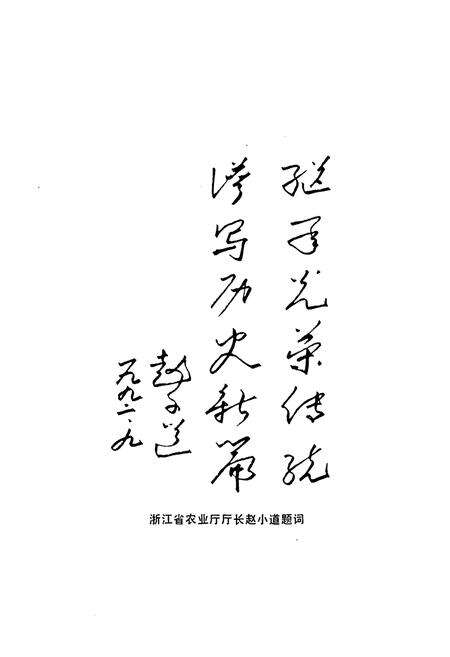 继承光荣传统
谱写历史新篇
赵小道
一九九二.九
浙江省农业厅厅长赵小道题词